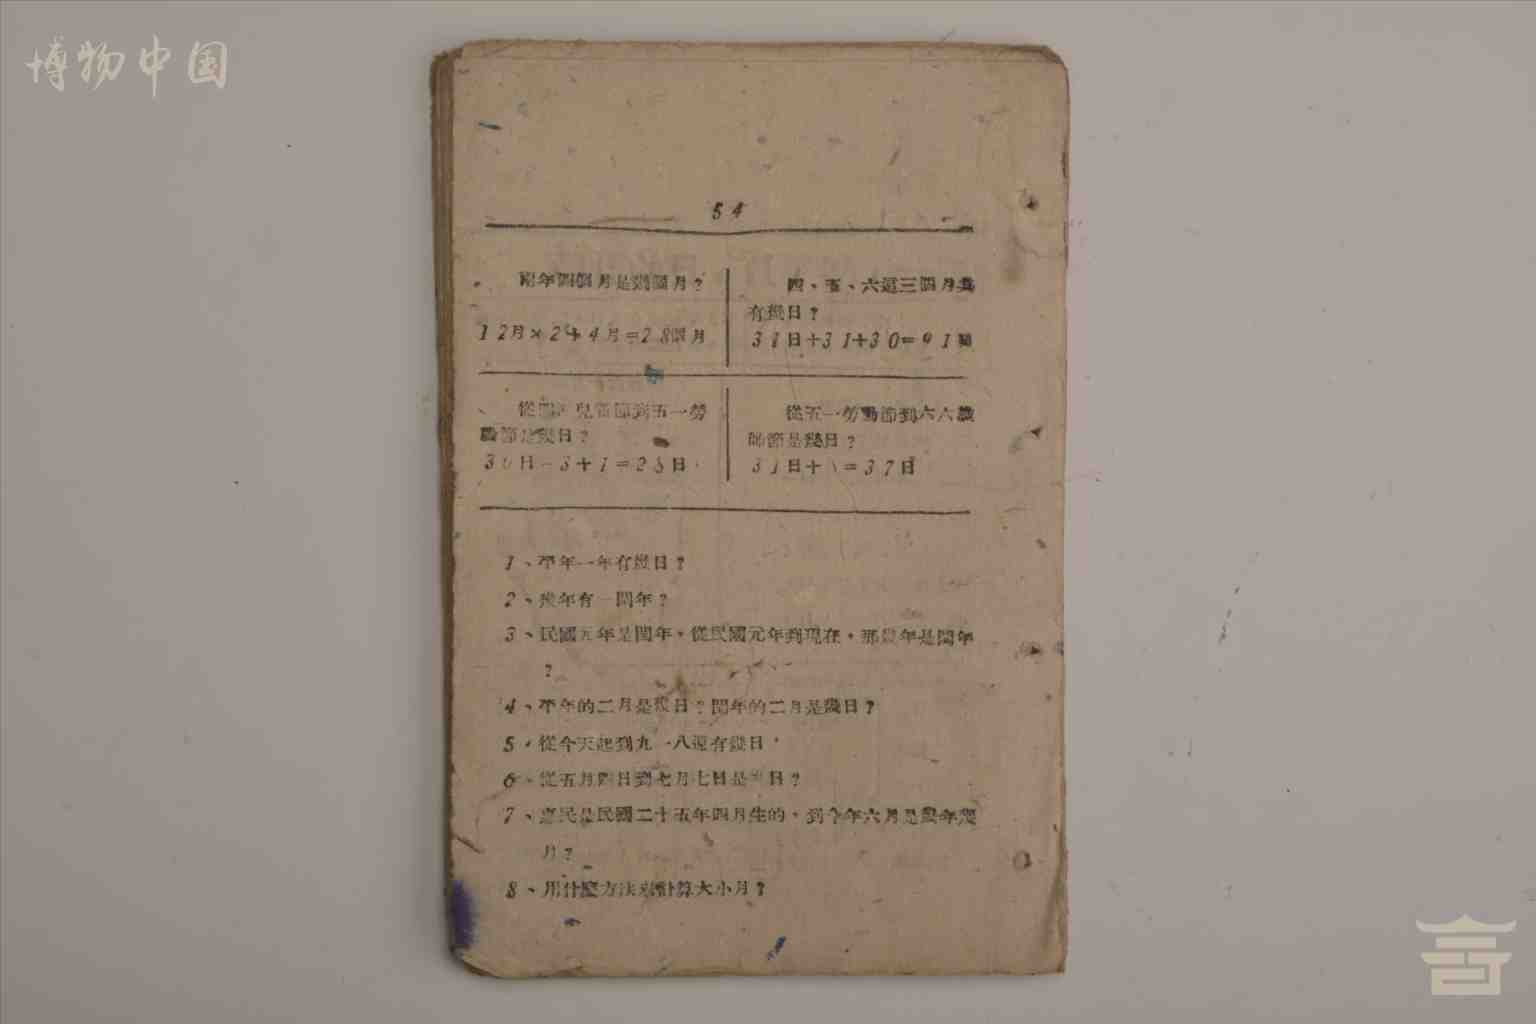 博物中国
54
兩年四個月是幾個月？
12月×2+4月=28個月
四、五、六這三個月共
有幾日？
31日+31+30=91
兒童節到五一勞
動節是幾日？
30日-3+1=28日
從五一勞動節到六六教
師節是幾日？
31日+ =37日
1、平年一年有幾日？
2、幾年有一閏年？
3、民國元年是閏年，從民國元年到現在，那幾年是閏年
？
4、平年的二月是幾日？閏年的二月是幾日？
5，從今天起到九一八還有幾日
6、從五月四日到七月七日是幾日？
7、惠民是民國二十五年四月生的，到今年六月是幾年幾
月？
8、用什麼方法來計算大小月？